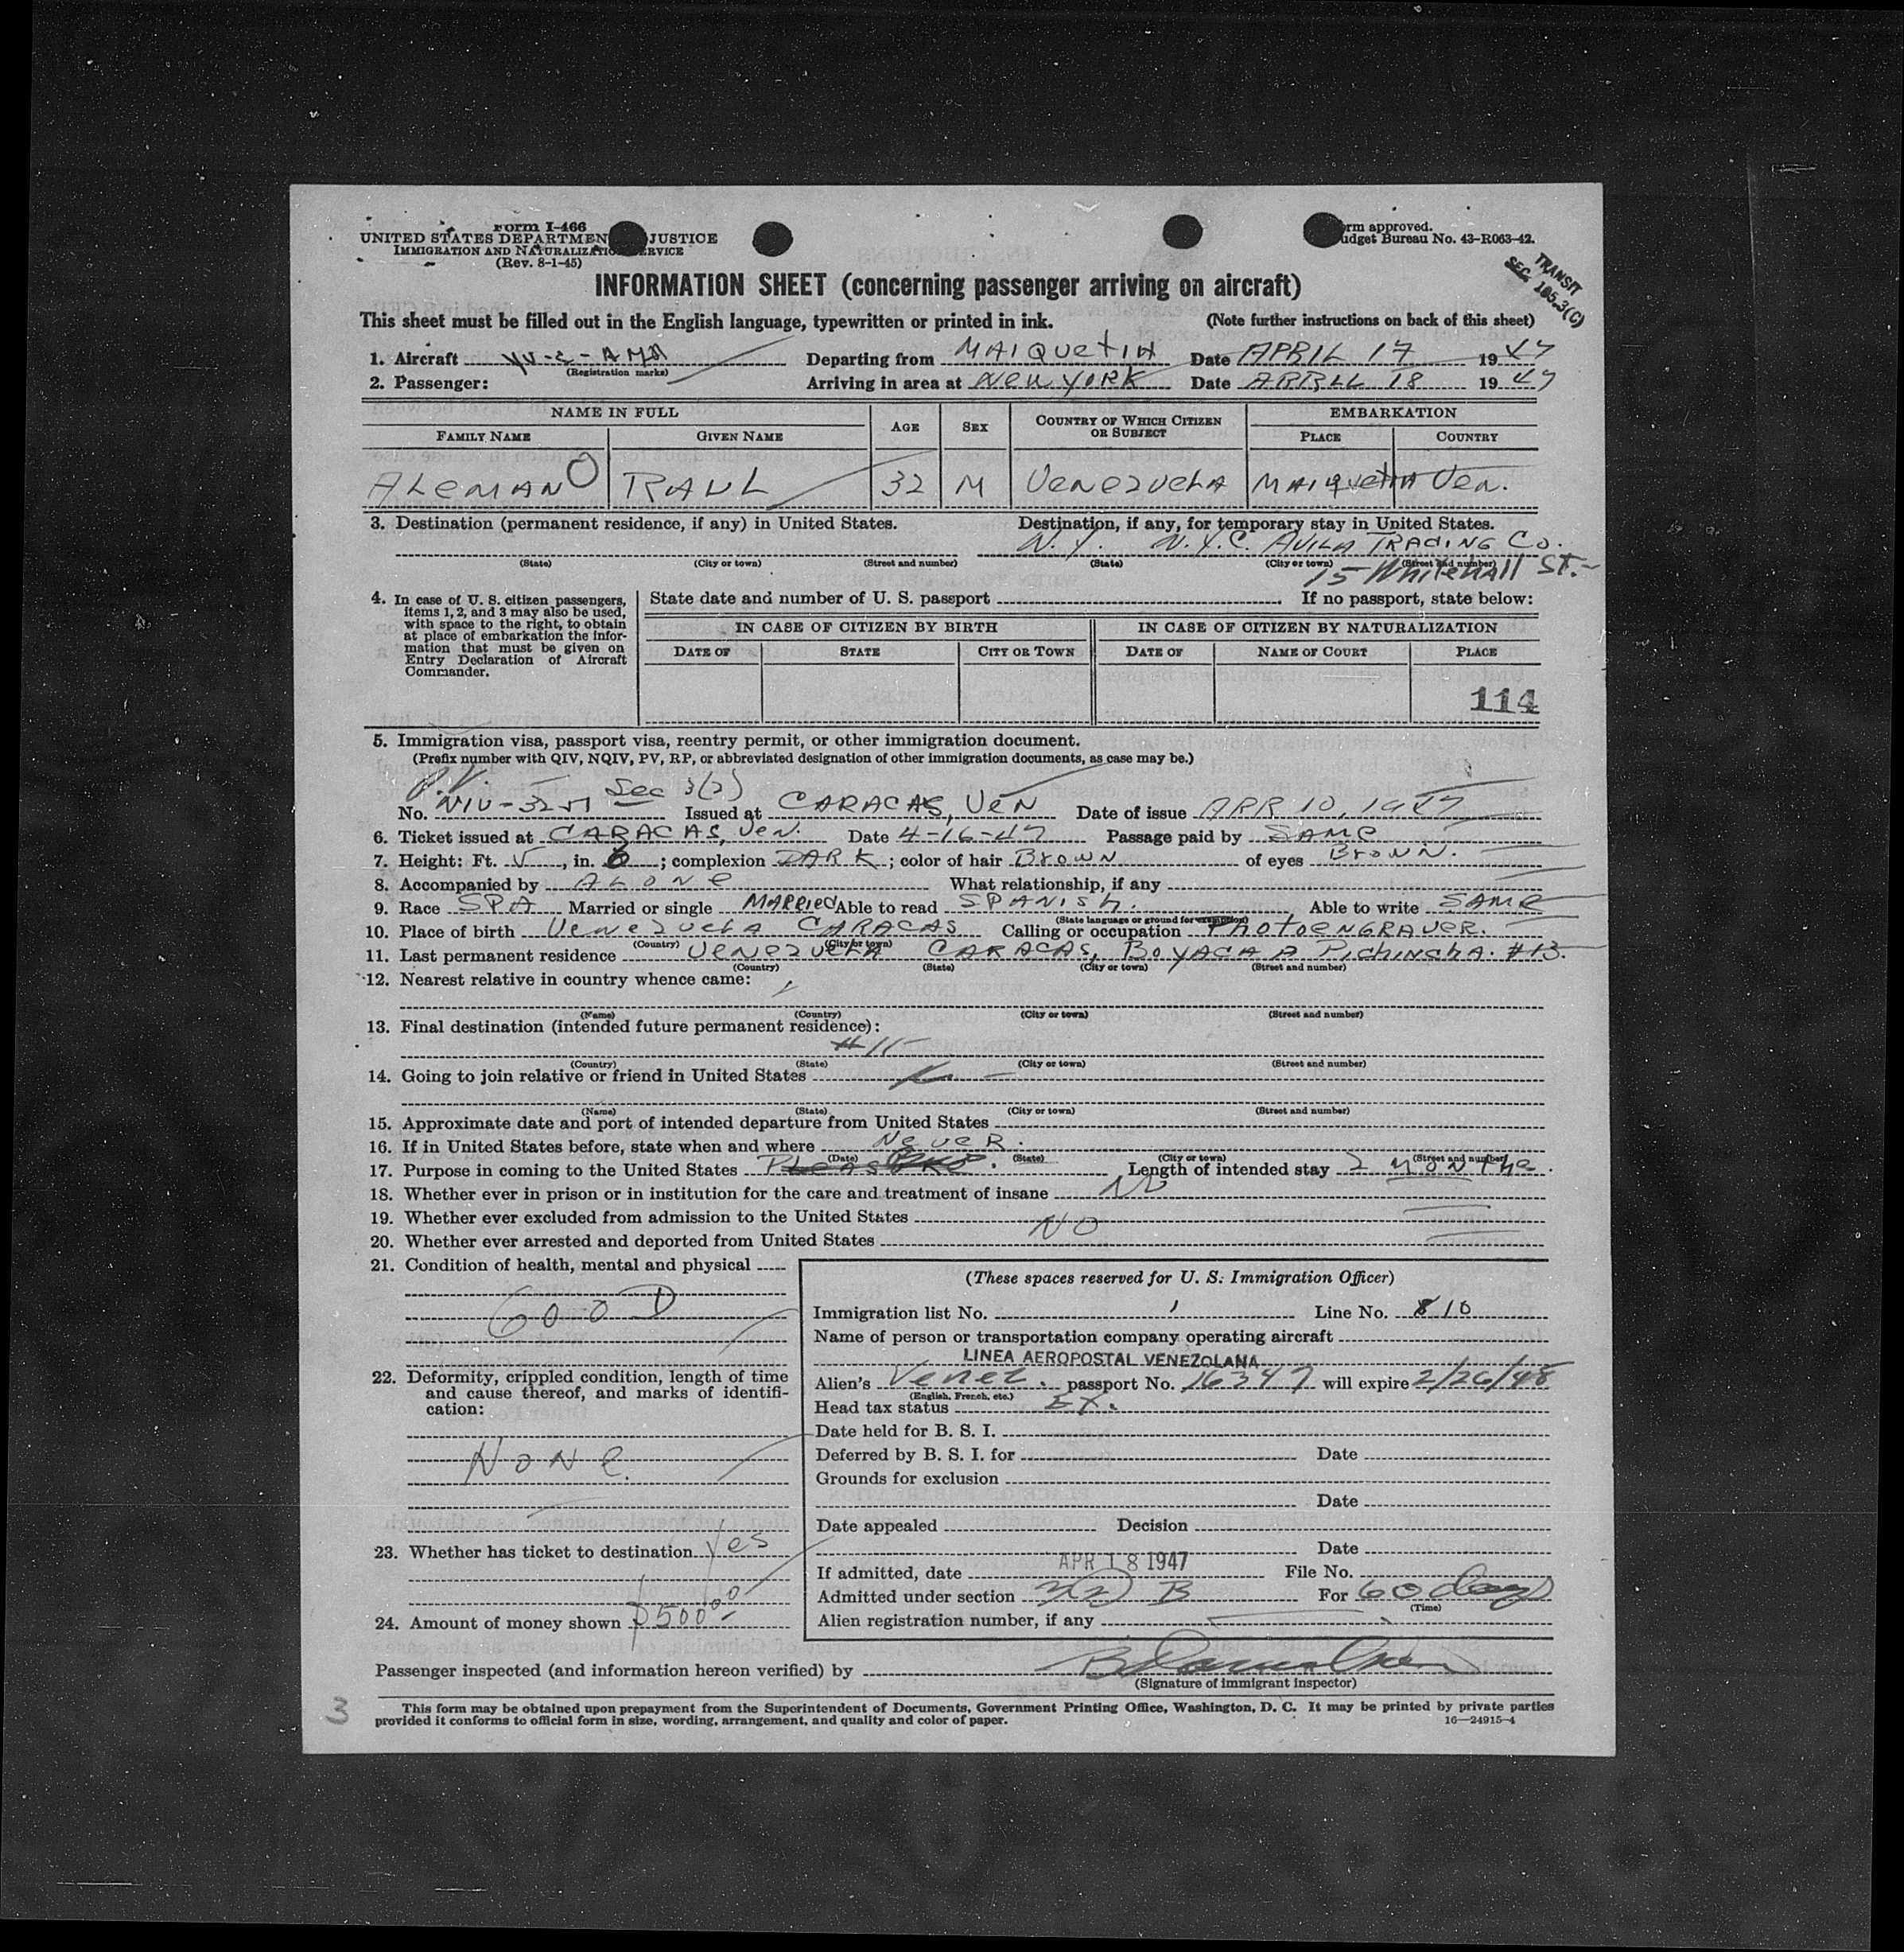 Form I-466
UNITED STATES DEPARTMEN JUSTICE
IMMIGRATION AND NATURALIZATIO ERVICE
(Rev. 8-1-45)
rm approved.
udget Bureau No. 43-R063-42.
TRANSIT
SEC. 105.3(C)
INFORMATION SHEET (concerning passenger arriving on aircraft)
This sheet must be filled out in the English language, typewritten or printed in ink. (Note further instructions on back of this sheet)
1. Aircraft YV-C-AMA Departing from MAIQUETIA Date APRIL 17 1947
(Registration marks)
2. Passenger: Arriving in area at NEW YORK Date APRIL 18 1947
NAME IN FULL AGE SEX COUNTRY OF WHICH CITIZEN OR SUBJECT EMBARKATION
FAMILY NAME GIVEN NAME PLACE COUNTRY
ALEMAN O RAUL 32 M VENEZUELA MAIQUETIA VEN.
3. Destination (permanent residence, if any) in United States. Destination, if any, for temporary stay in United States.
N.Y. N.Y.C. AVILA TRADING CO.
(State) (City or town) (Street and number) (State) (City or town) (Street and number)
15 Whitehall ST.
4. In case of U. S. citizen passengers, items 1, 2, and 3 may also be used, with space to the right, to obtain at place of embarkation the information that must be given on Entry Declaration of Aircraft Commander.
State date and number of U. S. passport If no passport, state below:
IN CASE OF CITIZEN BY BIRTH IN CASE OF CITIZEN BY NATURALIZATION
DATE OF STATE CITY OR TOWN DATE OF NAME OF COURT PLACE
114
5. Immigration visa, passport visa, reentry permit, or other immigration document.
(Prefix number with QIV, NQIV, PV, RP, or abbreviated designation of other immigration documents, as case may be.)
P.V. Sec 3(2)
No. Issued at CARACAS, VEN Date of issue APR 10, 1947
6. Ticket issued at CARACAS, VEN. Date 4-16-47 Passage paid by SAME
7. Height: Ft. 5, in. 6; complexion DARK; color of hair BROWN of eyes BROWN.
8. Accompanied by ALONE What relationship, if any
9. Race SPA Married or single MARRIED Able to read SPANISH. Able to write SAME
(State language or ground for exemption)
10. Place of birth VENEZUELA CARACAS Calling or occupation PHOTOENGRAVER.
(Country) (City or town)
11. Last permanent residence VENEZUELA CARACAS, BOYACA A PICHINCHA. #13.
(Country) (State) (City or town) (Street and number)
12. Nearest relative in country whence came:
(Name) (Country) (City or town) (Street and number)
13. Final destination (intended future permanent residence):
#11
(Country) (State) (City or town) (Street and number)
14. Going to join relative or friend in United States
(Name) (State) (City or town) (Street and number)
15. Approximate date and port of intended departure from United States
16. If in United States before, state when and where NEVER.
(Date) (State) (City or town) (Street and number)
17. Purpose in coming to the United States Length of intended stay 2 MONTHS.
18. Whether ever in prison or in institution for the care and treatment of insane NO
19. Whether ever excluded from admission to the United States
NO
20. Whether ever arrested and deported from United States
21. Condition of health, mental and physical
GOOD
22. Deformity, crippled condition, length of time and cause thereof, and marks of identification:
NONE.
23. Whether has ticket to destination Yes
24. Amount of money shown $500.00
(These spaces reserved for U. S. Immigration Officer)
Immigration list No. 1 Line No. 8 10
Name of person or transportation company operating aircraft
LINEA AEROPOSTAL VENEZOLANA
Alien's Venez. passport No. 16347 will expire 2/26/48
(English, French, etc.)
Head tax status EX.
Date held for B. S. I.
Deferred by B. S. I. for Date
Grounds for exclusion
Date
Date appealed Decision
Date
If admitted, date APR 18 1947 File No.
Admitted under section 3(2) B For 60 days
(Time)
Alien registration number, if any
Passenger inspected (and information hereon verified) by
(Signature of immigrant inspector)
3
This form may be obtained upon prepayment from the Superintendent of Documents, Government Printing Office, Washington, D. C. It may be printed by private parties
provided it conforms to official form in size, wording, arrangement, and quality and color of paper. 16—24915-4